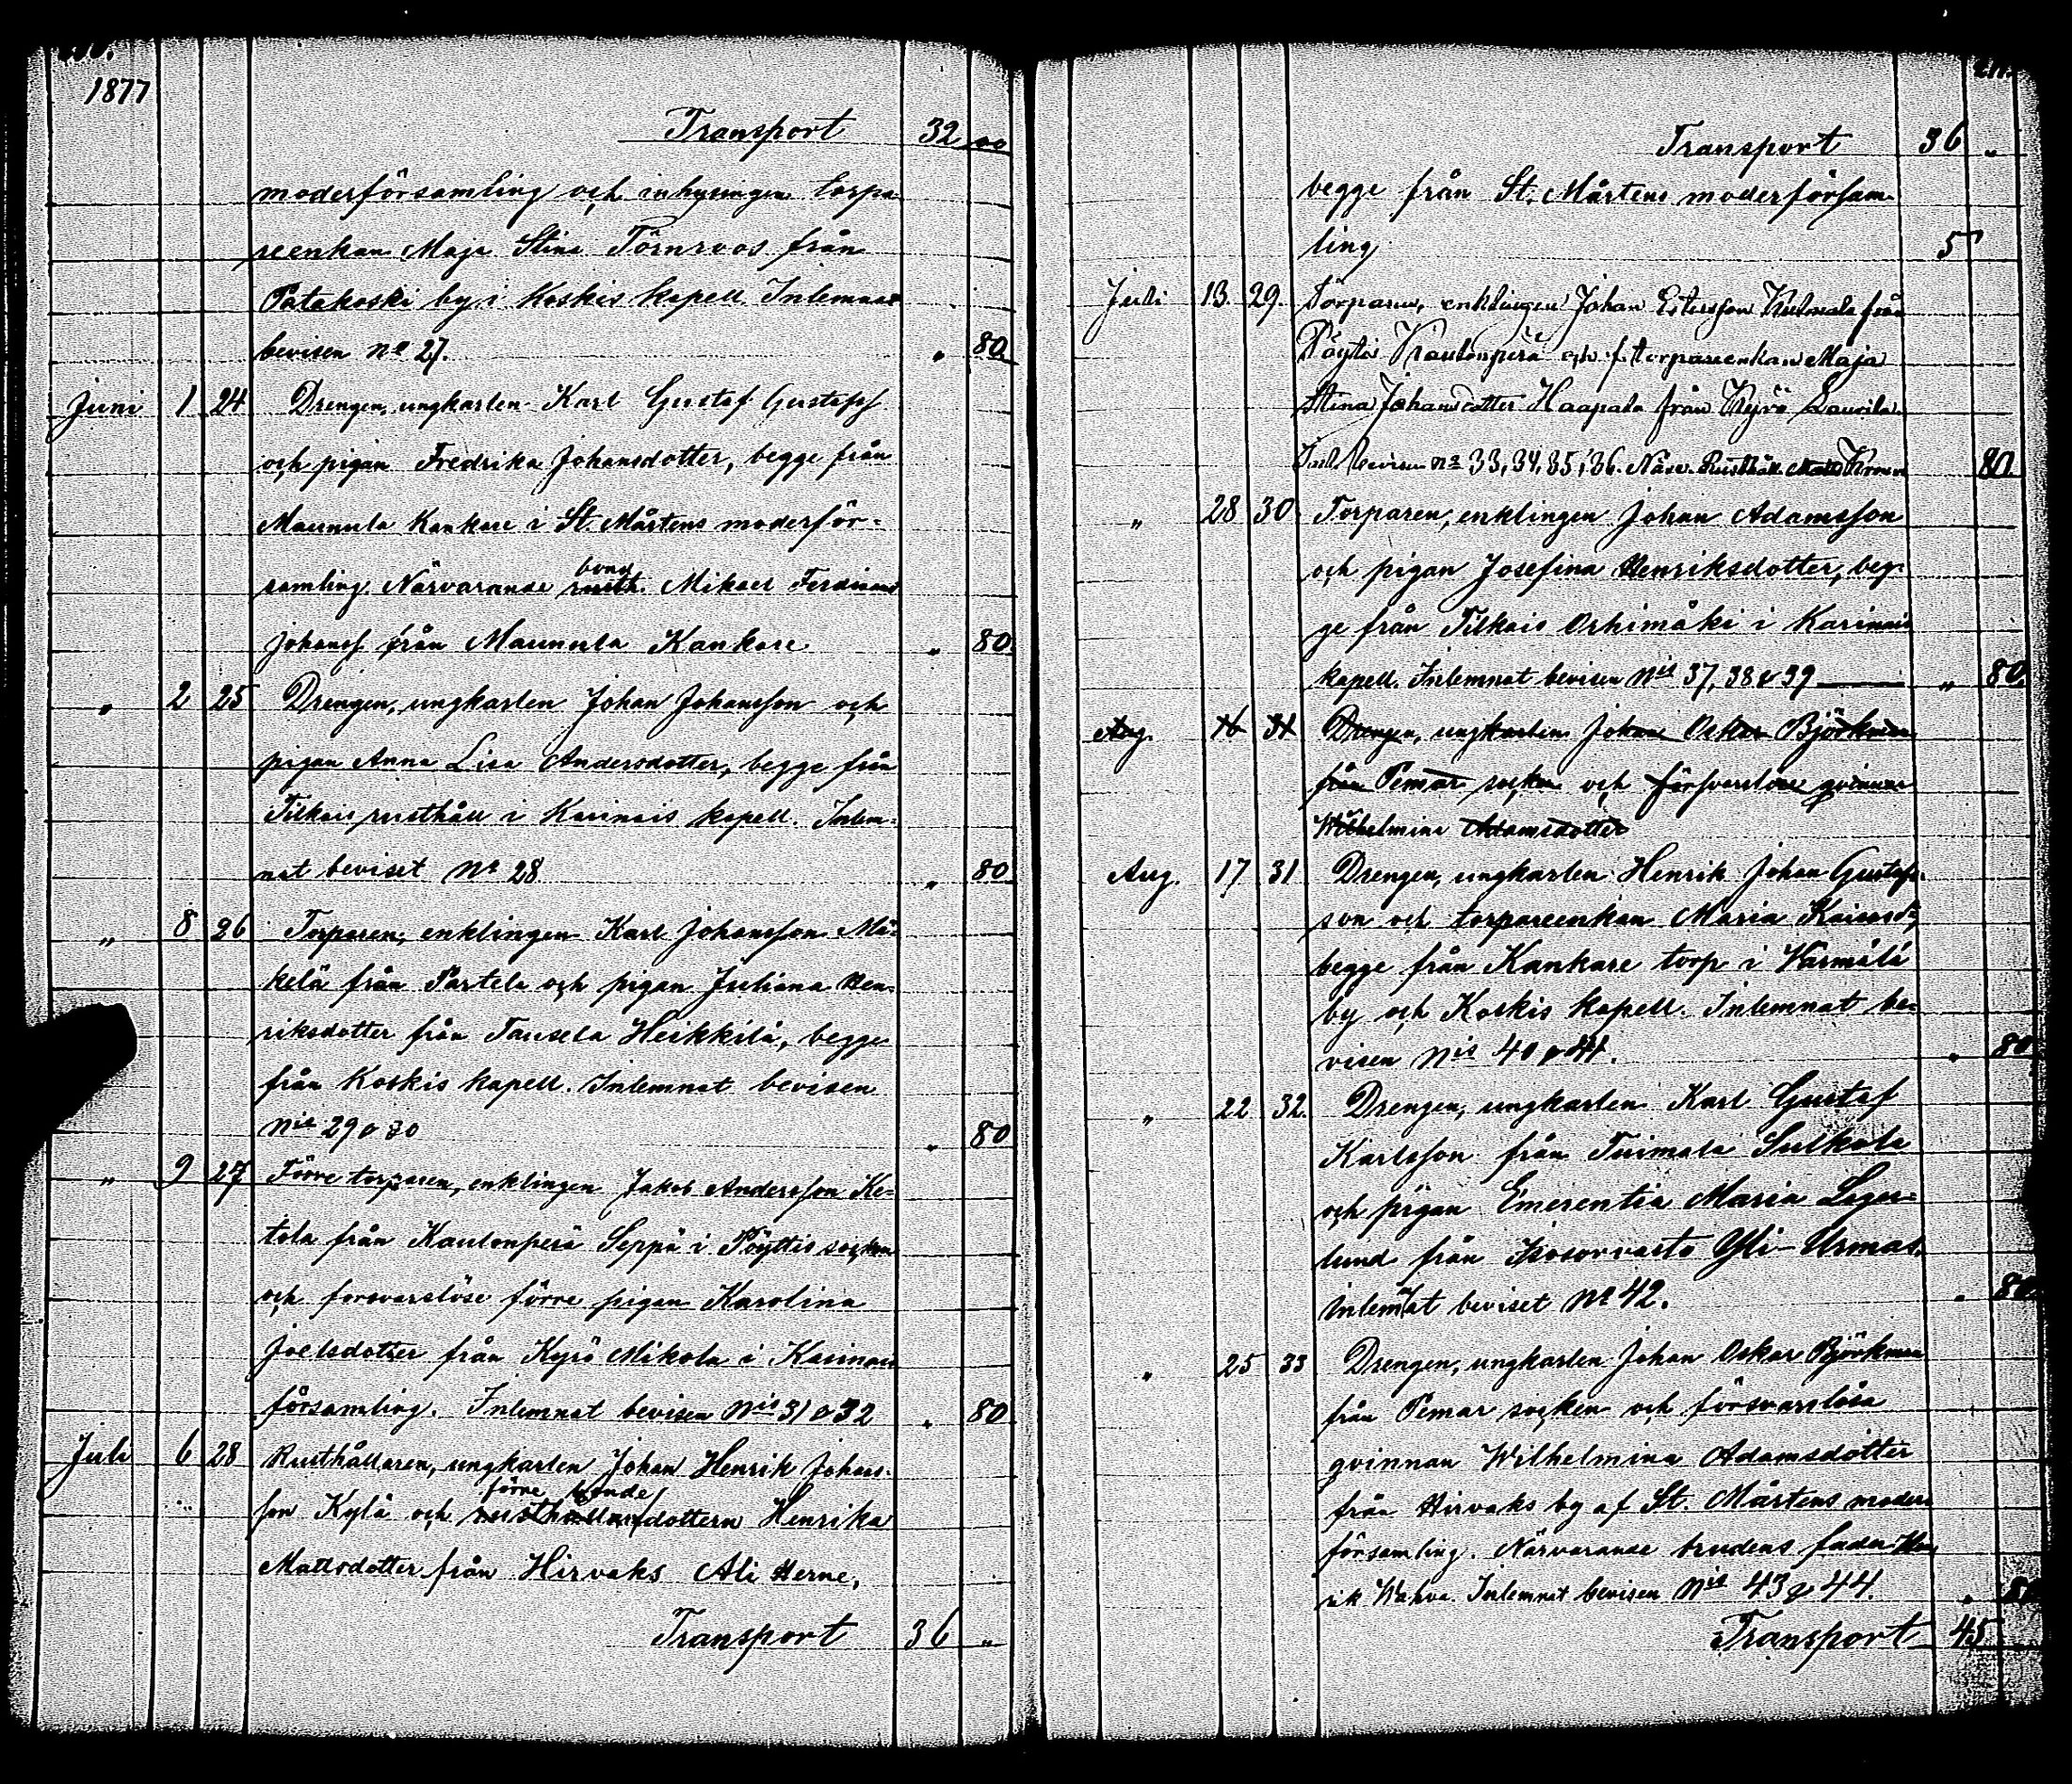 1877
Transport 32 00
moderförsamling och inhysingen torpa-
reenkan Maja Stina Törnroos från
Patakoski by i Koskis kapell. Inlemnat
bevisen No 27. " 80
Juni 1 24 Drengen, ungkarlen Karl Gustaf Gustafss
och pigan Fredrika Johansdotter, begge från
Maunula Kankare i St. Mårtens moderför-
bond
samling. Närvarande rusth. Mikael Ferdinand
Johanss. från Maunula Kankare " 80
" 2 25 Drengen, ungkarlen Johan Johansson och
pigan Anna Lisa Andersdotter, begge från
Tilkais rusthåll i Karinais kapell. Inlem-
nat beviset No 28 " 80
" 8 26 Torparen, enklingen Karl Johansson Mä-
kelä från Partela och pigan Juliana Hen-
riksdotter från Tausela Heikkilä, begge
från Koskis kapell. Inlemnat bevisen
Nis 29 o 30 " 80
" 9 27 Förre torparen, enklingen Jakob Andersson Ke-
tola från Kaulonperä Seppä i Pöyttis socken
och forsvarslöse förre pigan Karolina
Joelsdotter från Kyrö Mikola i Karinais
församling. Inlemnat bevisen Nis 31 o 32 " 80
Juli 6 28 Rusthållaren, ungkarlen Johan Henrik Johans-
förre bonde
son Kylä och rusthållarsdottern Henrika
Mattsdotter från Hirvaks Ali Herne,
Transport 36 "
Transport 36 "
begge från St. Mårtens moderförsam-
ling 5
Juli 13. 29. Torparen, enklingen Johan Ersson från
Pöytis Kaulonperä och f. torpareenkan Maja
Stina Johansdotter Haapala från Kyrö Laurila.
Inl. bevisen No 33, 34, 35, 36. Närv. Rusthåll. Matts 80
" 28 30 Torparen, enklingen Johan Adamsson
och pigan Josefina Henriksdotter, beg-
ge från Tilkais Orhimäki i Karinais
kapell. Inlemnat bevisen Nis 37, 38 o 39 " 80
Aug. 16 31 Drengen, ungkarlen Johan Oskar Björkman
från Pemar socken och försvarslösa qvinnan
Wilhelmina Adamsdotter
Aug. 17 31 Drengen, ungkarlen Henrik Johan Gustafs-
son och torpareenkan Maria Kaisasdr,
begge från Kankare torp i Värmälä
by och Koskis kapell. Inlemnat be-
visen Nis 40 o 41. " 80
" 22 32. Drengen, ungkarlen Karl Gustaf
Karlsson från Tuimala Sulkala
och pigan Emerentia Maria Lager-
lund från Isosorvasto Yli-Urmas.
Inlemnat beviset No 42. " 80
" 25 33 Drengen, ungkarlen Johan Oskar Björkman
från Pemar socken och försvarslösa
qvinnan Wilhelmina Adamsdotter
från Hirvaks by af St. Mårtens moder-
församling. Närvarande brudens fader Hen-
rik Wahva. Inlemnat bevisen Nis 43 o 44. " 80
Transport 45